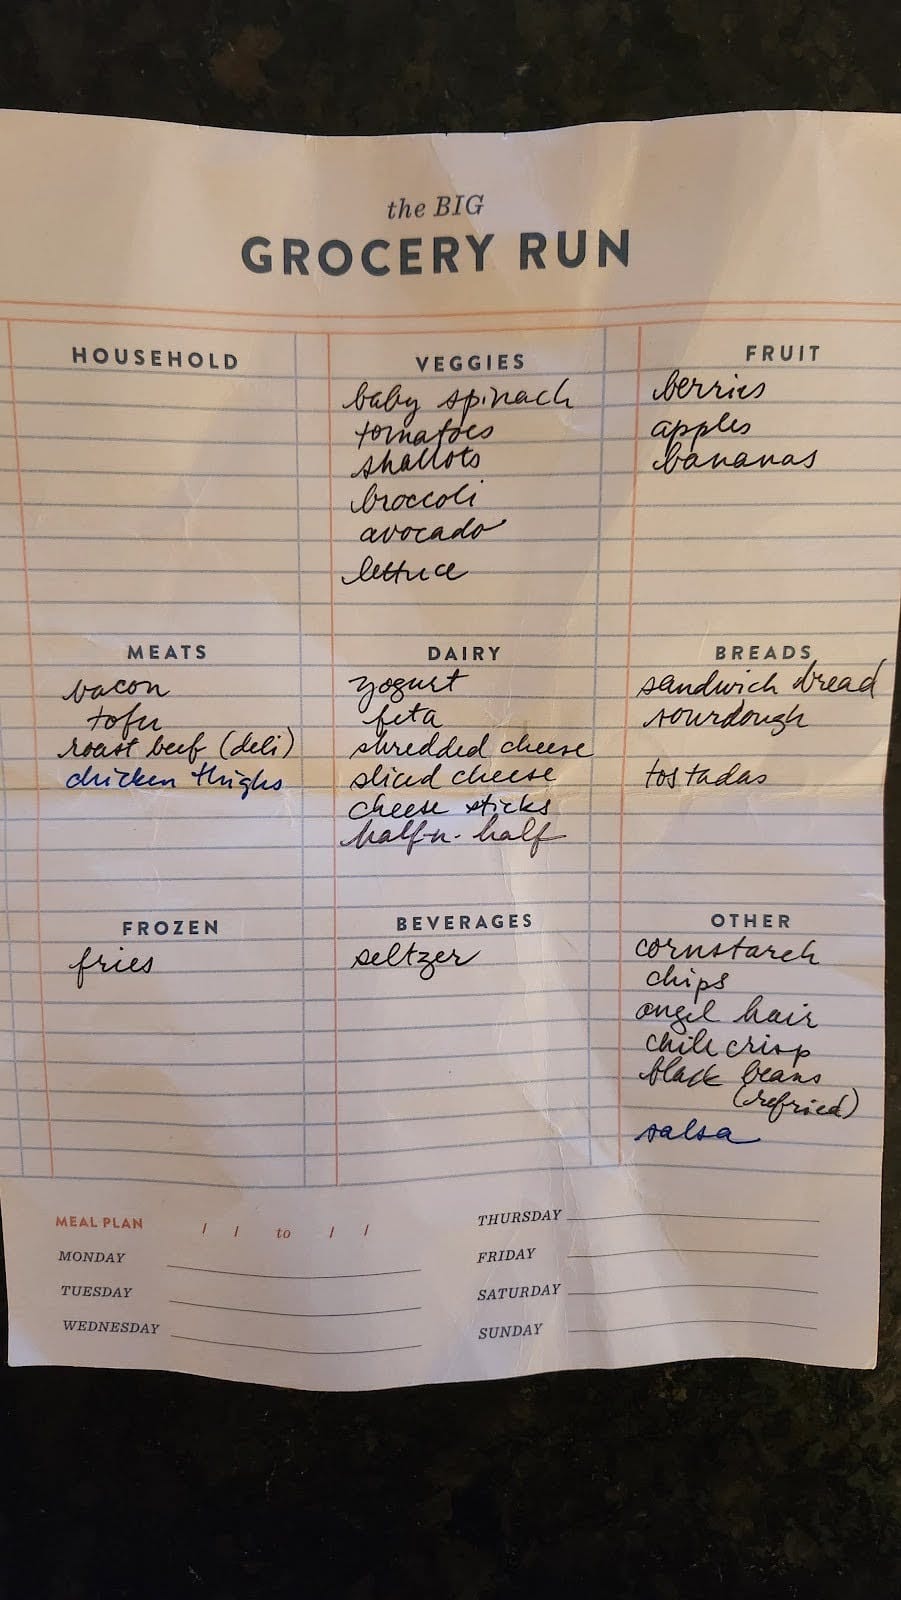 the BIG
GROCERY RUN
HOUSEHOLD
VEGGIES
baby spinach
tomatoes
shallots
broccoli
avocado
lettuce
FRUIT
berries
apples
bananas
MEATS
bacon
tofu
roast beef (deli)
chicken thighs
DAIRY
yogurt
feta
shredded cheese
sliced cheese
cheese sticks
half-n-half
BREADS
sandwich bread
sourdough
tostadas
FROZEN
fries
BEVERAGES
seltzer
OTHER
cornstarch
chips
angel hair
chili crisp
black beans
(refried)
salsa
MEAL PLAN / / to / /
MONDAY
TUESDAY
WEDNESDAY
THURSDAY
FRIDAY
SATURDAY
SUNDAY